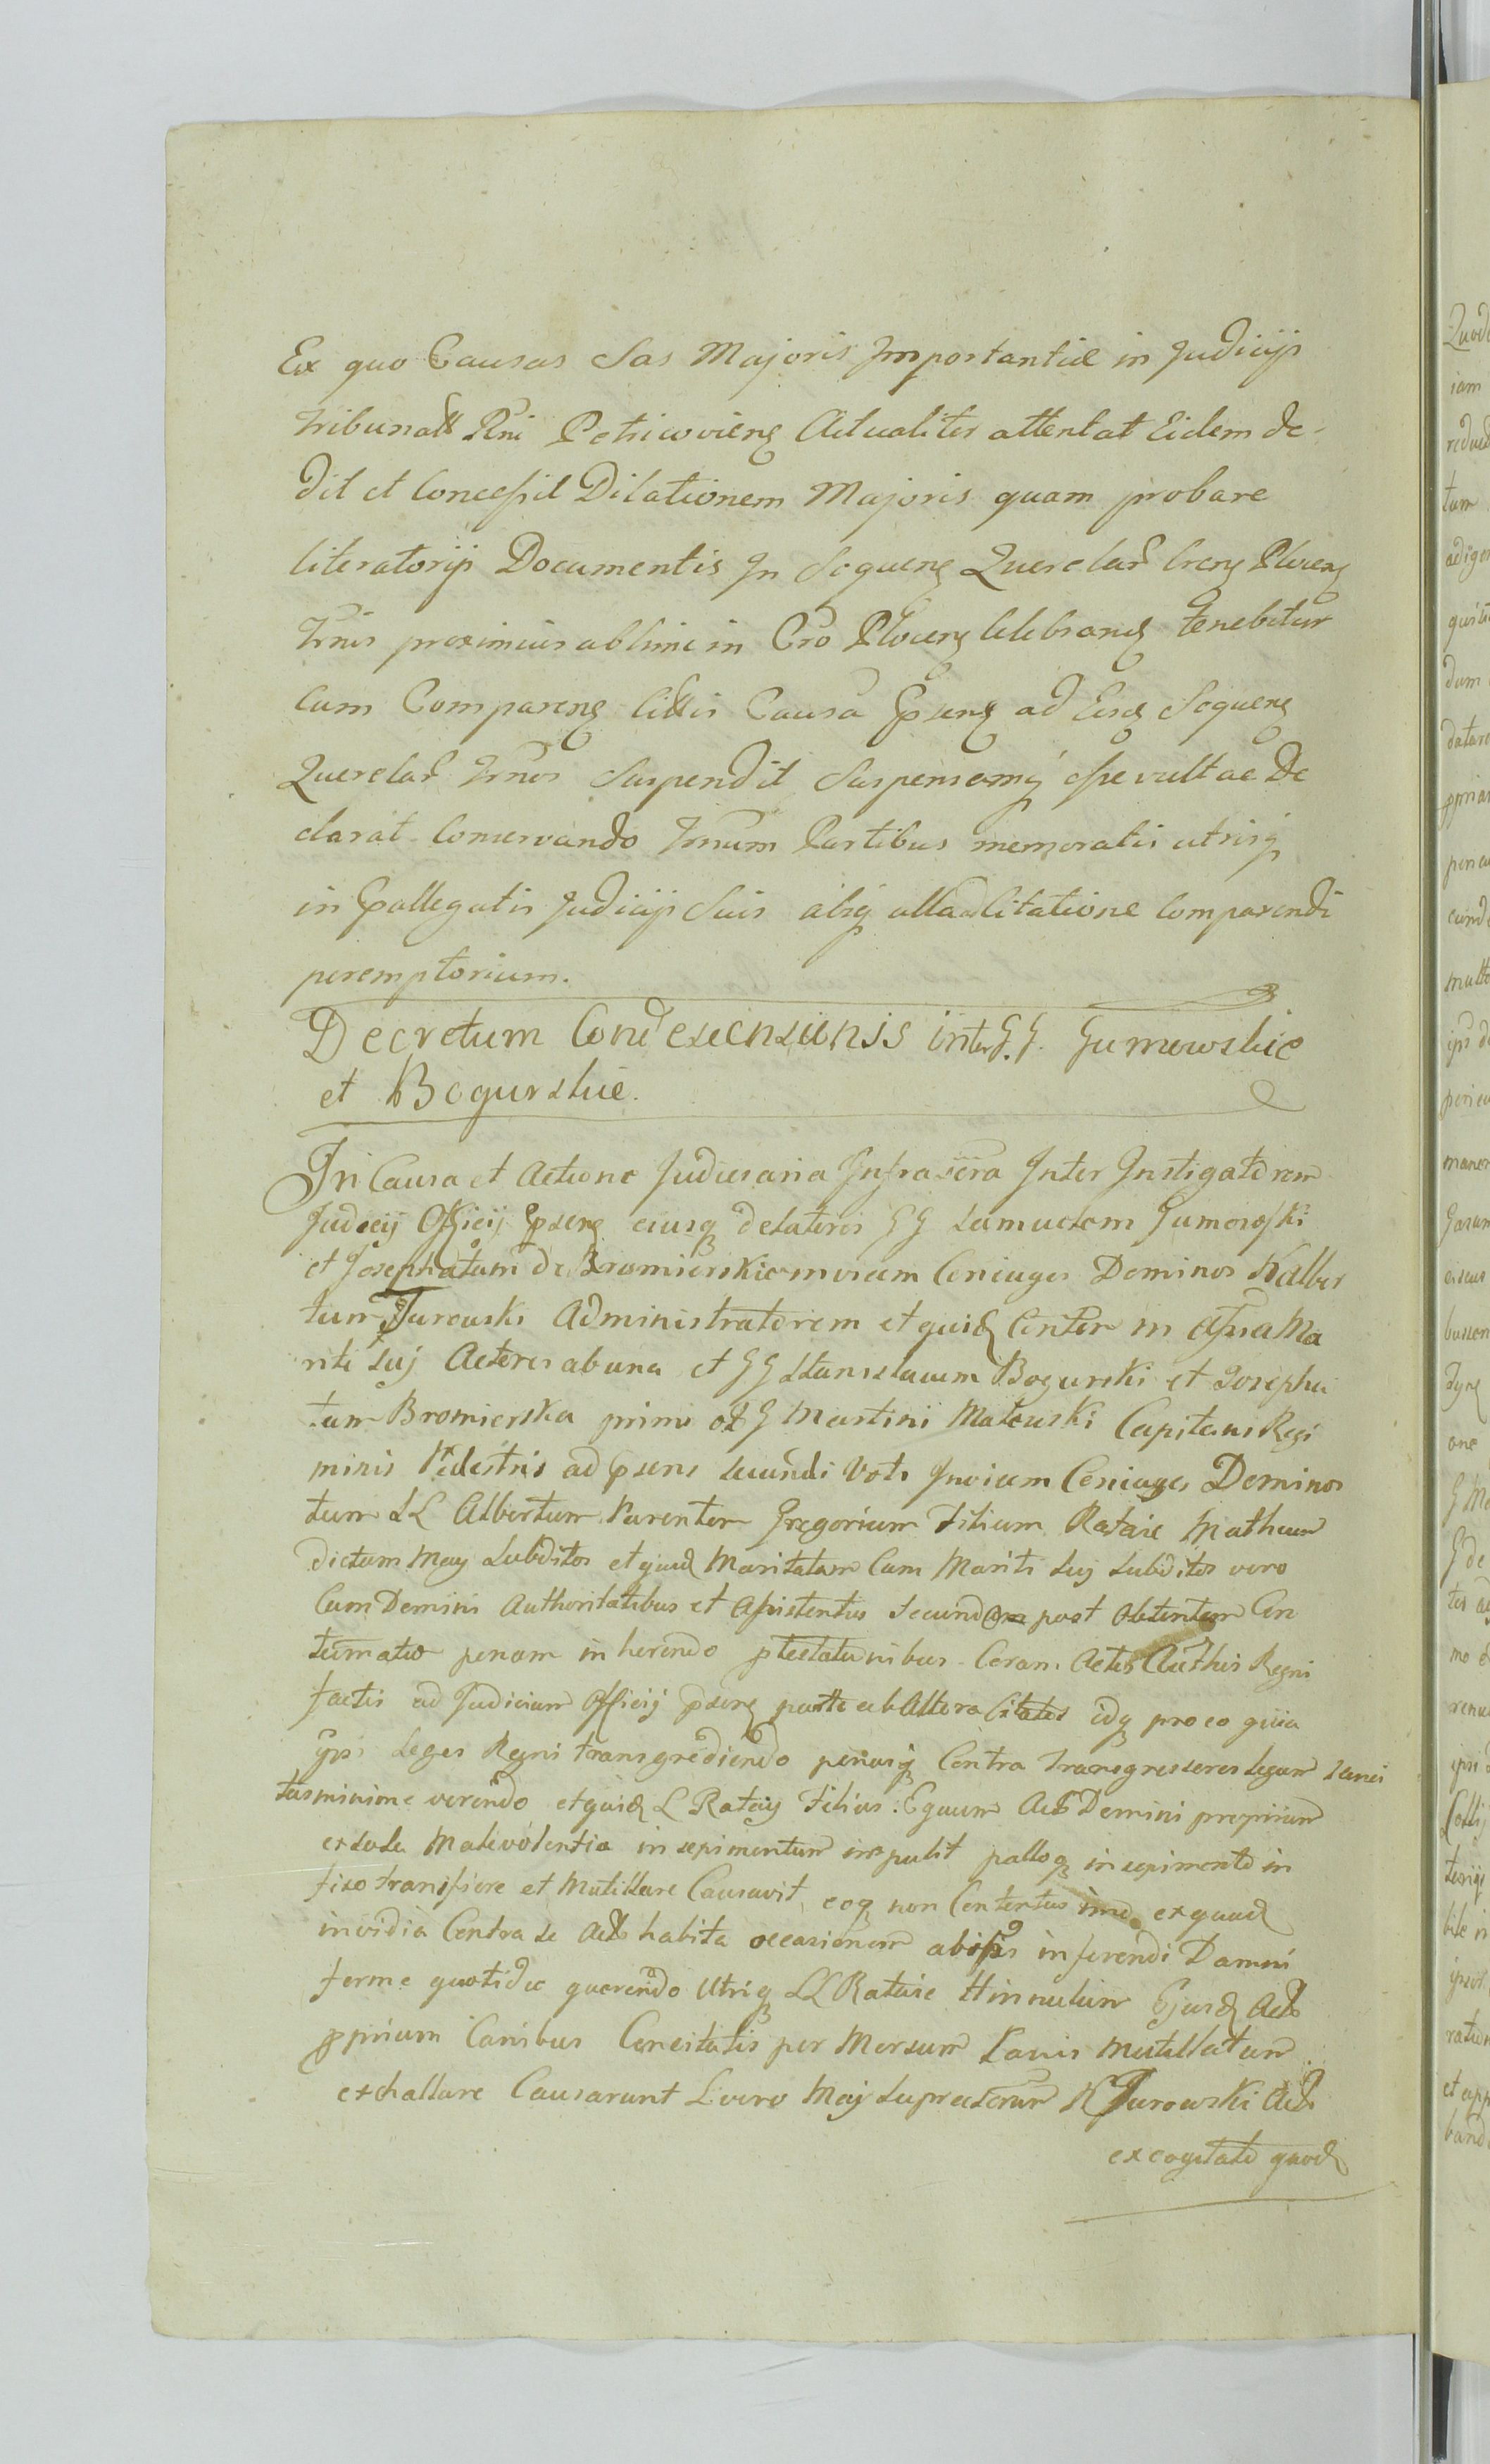 Ex quo Causas Sas Majoris Importantiæ in Judicijs
Tribunalt Rni Petricoviens Actualiter attentat Eidem de-
dit et Concessit Dilationem Majoris quam probare
literatorijs Documentis In Sequens Querelar Crens Plocens
Trnis proximius ab hinc in Cro Plocens Celebrand tenebitur
Cum Comparens Causa Psens ad Eosd Sequens
Querelar Trnos Suspendit Suspensamq esse vult ac De
clarat Conservando Trnum Partibus memoratis utrisq
in Pallegatis Judicijs Suis absq ulla Citatione Comparendi
peremptorium.
Decretum Cond inter G.G. Gumowskie
et Bogurskie.
In Causa et Actione Judiciaria Infrascra Inter Instigatorem
Judicij Officij Psens eiusq delatores GG Samuelem Gumowski
et Josephatam de Bromierskie invicem Coniuges Dominos Kalber
tum Turowski Administratorem et quid in Assa Ma
riti Suj Actores ab una et GG Stanislaum Bogurski et Josepha
tam Bromierska primi olt G Martini Makowski Capitani Regi
minis Pedestris ad psens secundi Voti Invicem Coniuges Dominos
tum LL Albertum Parentem Gregorium Filium Rataie Matheum
dictum May Subditos et quid Maritatam Cum Mariti Suj Subditos vero
Cum Domini Authoritatibus et Assistentiis Secundo post Obtentam Con
tumatio penam inherendo ptestationibus Coram Actis Authis Regni
factis ad Judicium Officij Psens parte ab Altera Citatos idq pro eo quia
ipsi Leges Regni transgrediendo penasq Contra transgressores legum sanci
tas minime verendo et quid L Rataij Filius Equum Act Domini proprium
ex sola Malevolentia in sepimentum impulit palloq in sepimento in
fixo transfigere et Mutillare Causavit, eoq non Contentus imo ex quad
invidia Contra se Act habita occasionem ab ipsis inferendi Damni
ferme quotidie querendo Utriq LL Rataie Hinnulum Ejusd Act
pprium Canibus Concitatis per Morsum Canis Mutillatum
exchallare Causarunt L vero May suprascrum K Turowski Act
excogitato quod